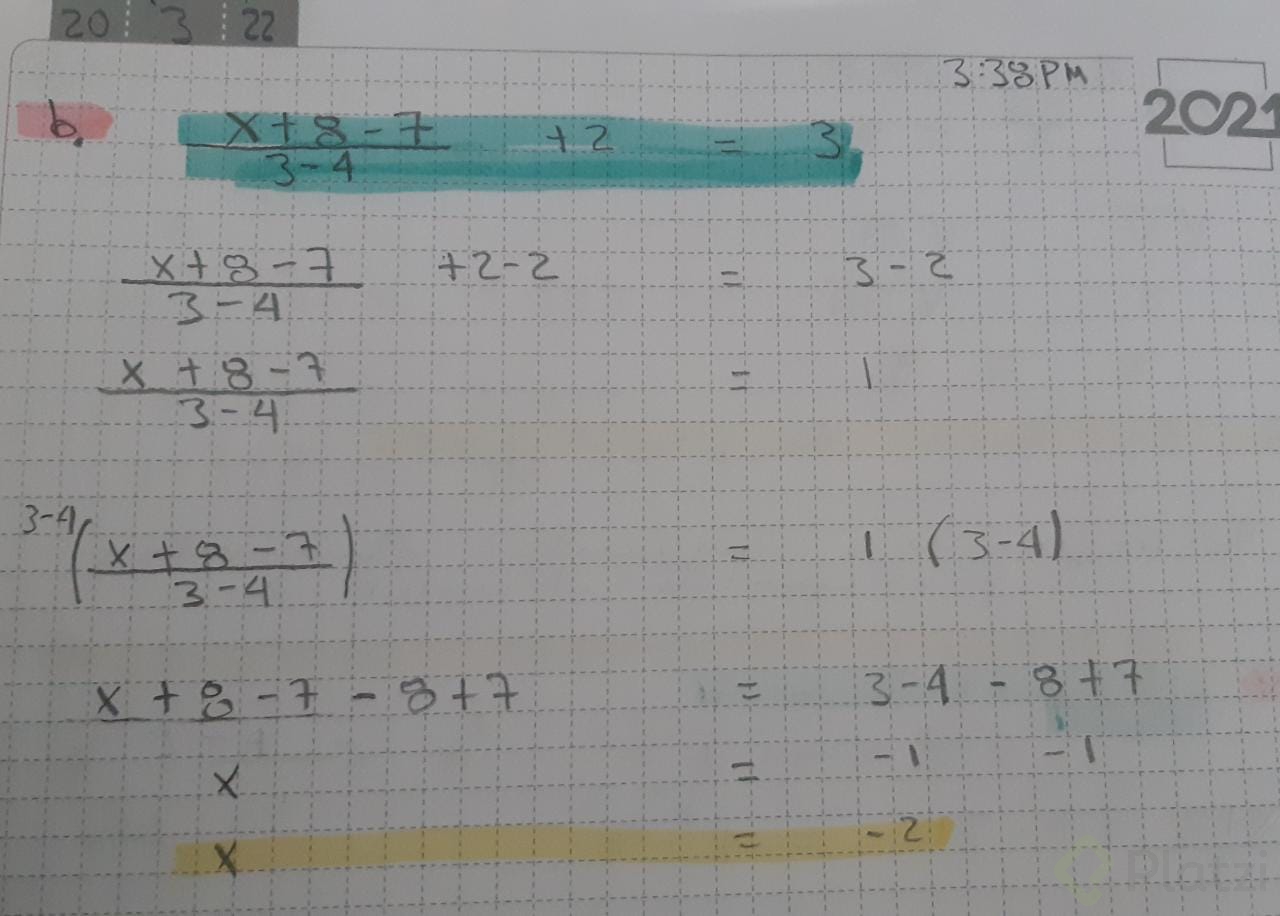 20 3 22
3:38PM
2021
b. x+8-7 +2 = 3
3-4
x+8-7 +2-2 = 3-2
3-4
x+8-7 = 1
3-4
3-4(x+8-7) = 1 (3-4)
3-4
x+8-7-8+7 = 3-4-8+7
x = -1 -1
x = -2
Platzi